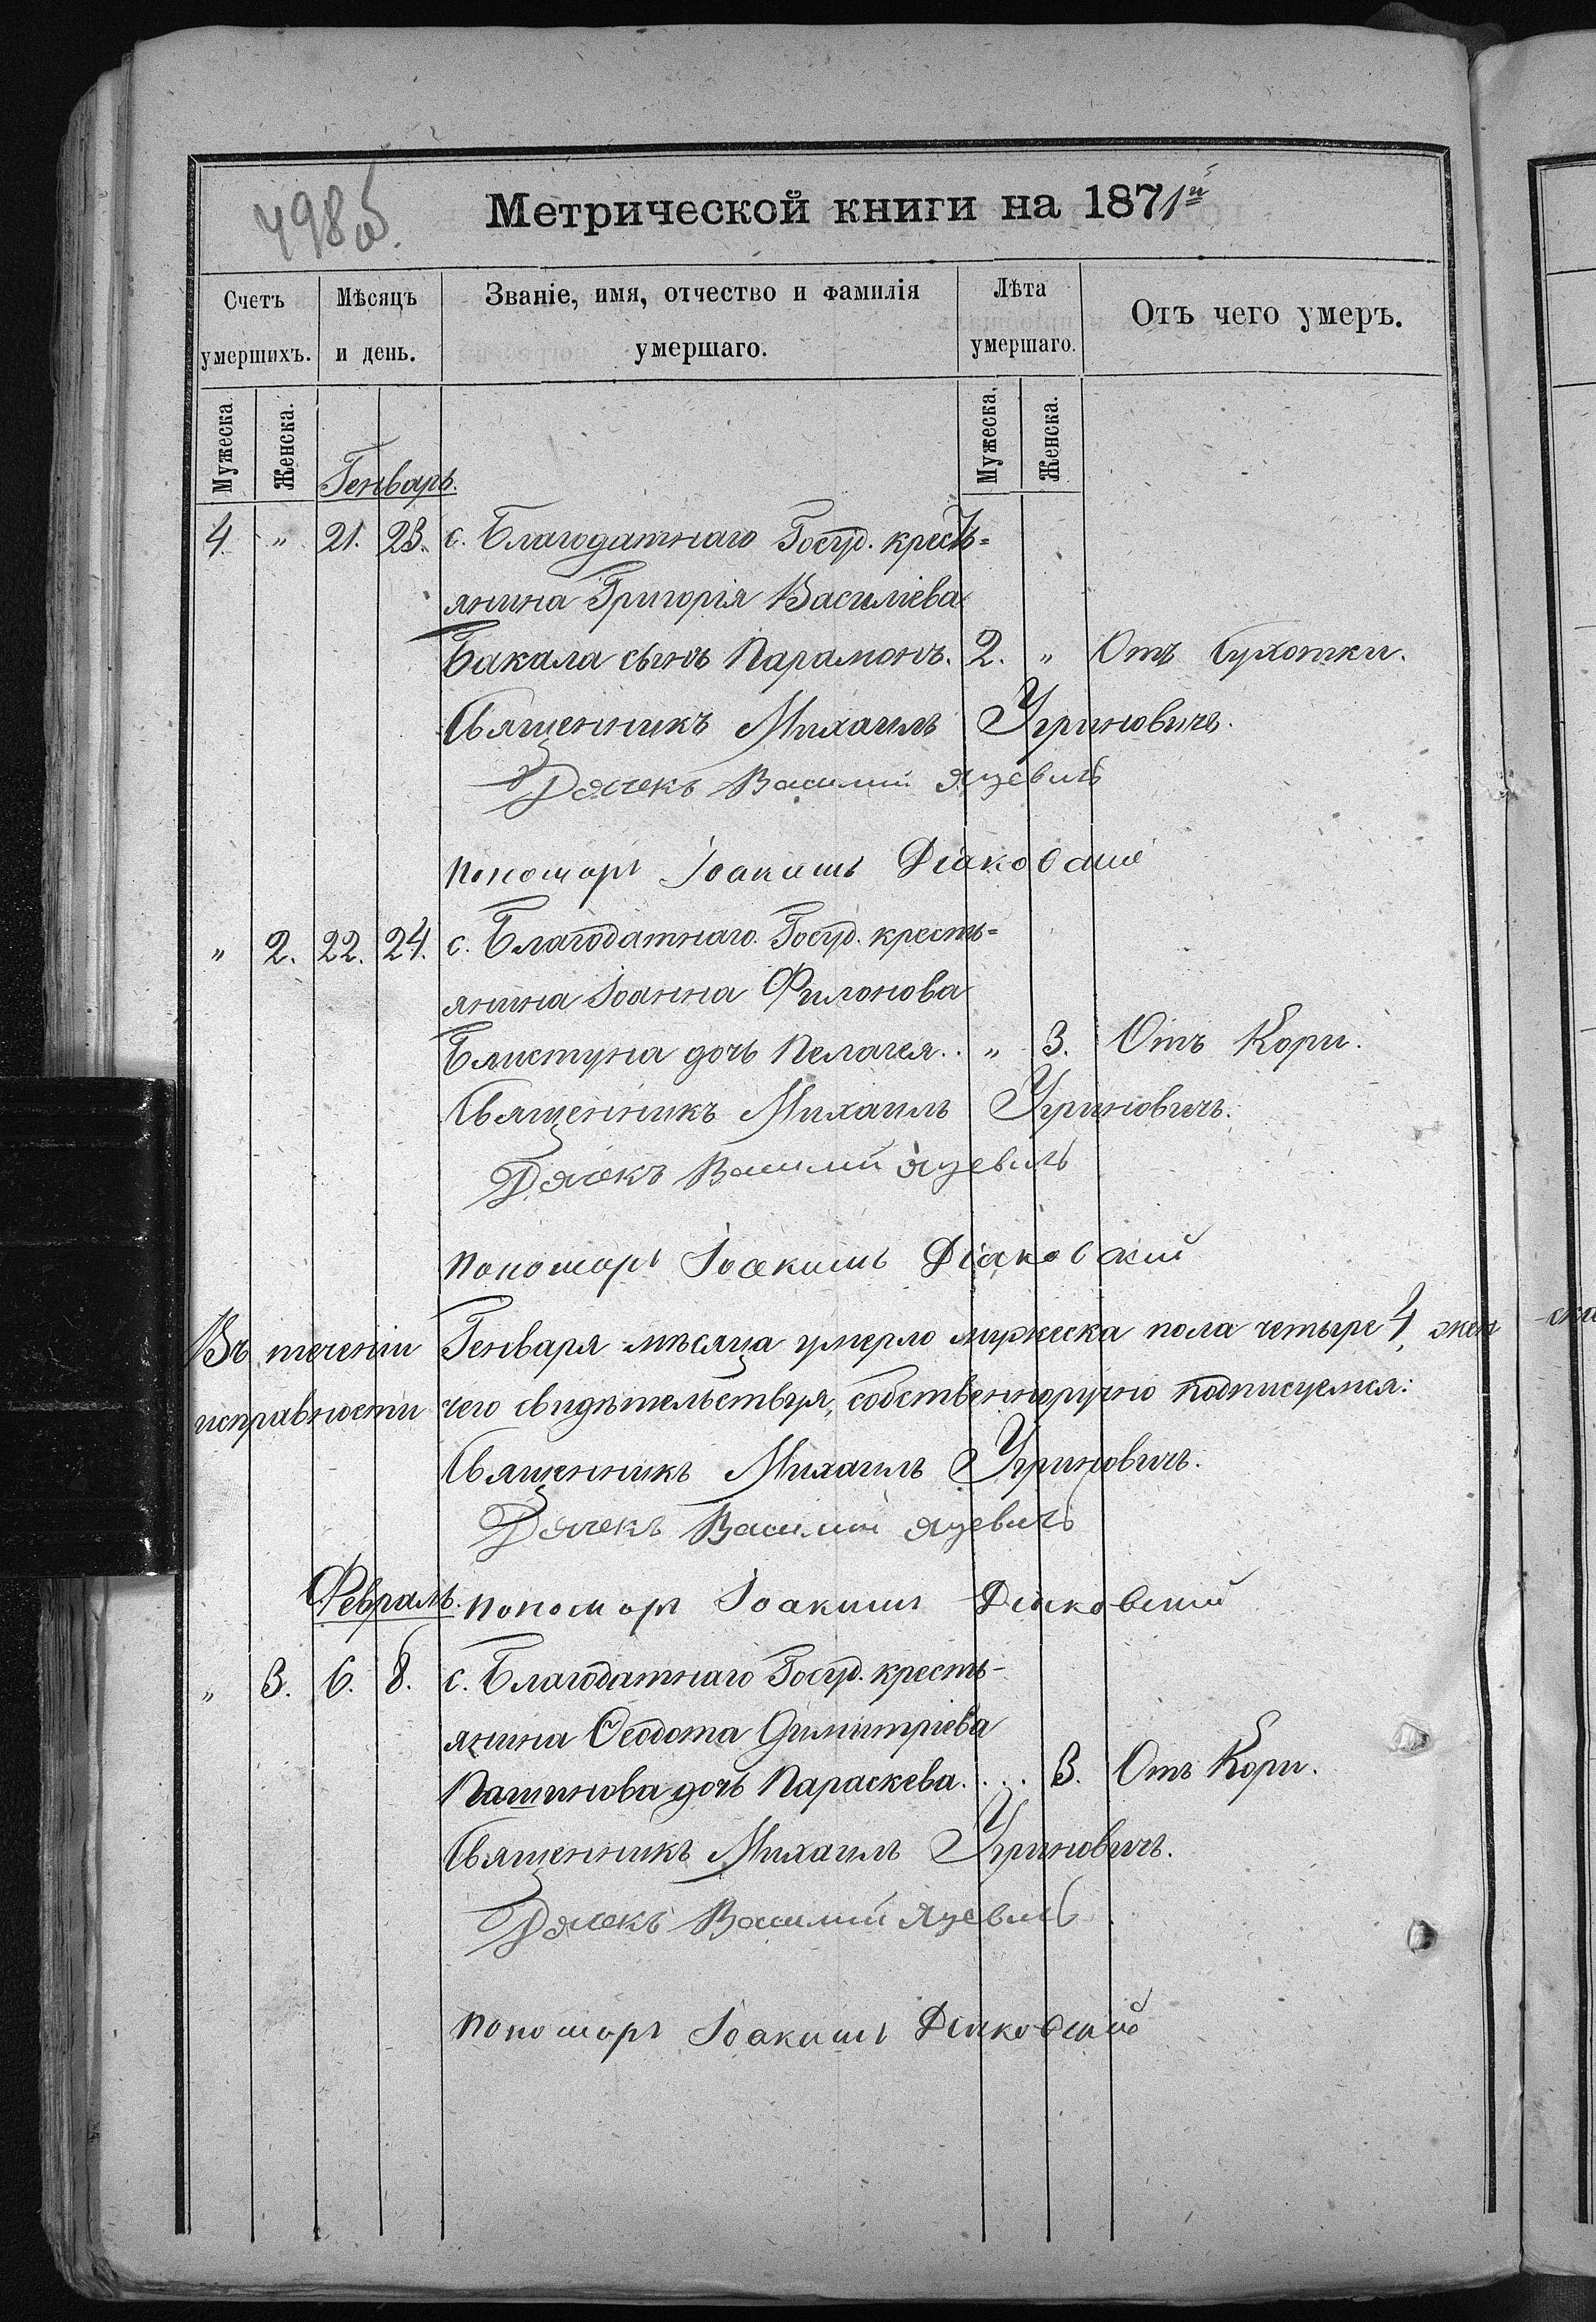 498 об.
Метрической книги на 1871й
Счетъ умершихъ. Мѣсяцъ и день. Званіе, имя, отчество и фамилія умершаго. Лѣта умершаго. Отъ чего умеръ.
Мужеска Женска. Мужеска. Женска.
Генварь.
4. „ 21. 23. с. Благодатнаго Госуд. кресть=
янина Григорія Василіева
Бакала сынъ Парамонъ. 2. „ Отъ Сухотки.
Священникъ Михаилъ Угриновичъ.
Дячекъ Василий Яцевичъ
Пономарь Іоакимъ Діаковскій
„ 2. 22. 24. с. Благодатнаго Госуд. кресть=
янина Іоанна Филонова
Блистуна дочь Пелагея.. „ 3. Отъ Кори.
Священникъ Михаилъ Угриновичъ.
Дячекъ Василий Яцевичъ
Пономарь Іоакимъ Діаковскій
Въ теченіи Генваря мѣсяца умерло мужеска пола четыре 4, жен
исправности чего свидѣтельствуя, собственноручно подписуемся:
Священникъ Михаилъ Угриновичъ.
Дячекъ Василий Яцевичъ
Февраль. Пономарь Іоакимъ Діаковскій
„ 3. 6. 8. с. Благодатнаго Госуд. кресть-
янина Ѳеодота Димитріева
Пашинова дочь Параскева.... 3. Отъ Кори.
Священникъ Михаилъ Угриновичъ.
Дячекъ Василий Яцевичъ.
Пономарь Іоакимъ Діаковскій